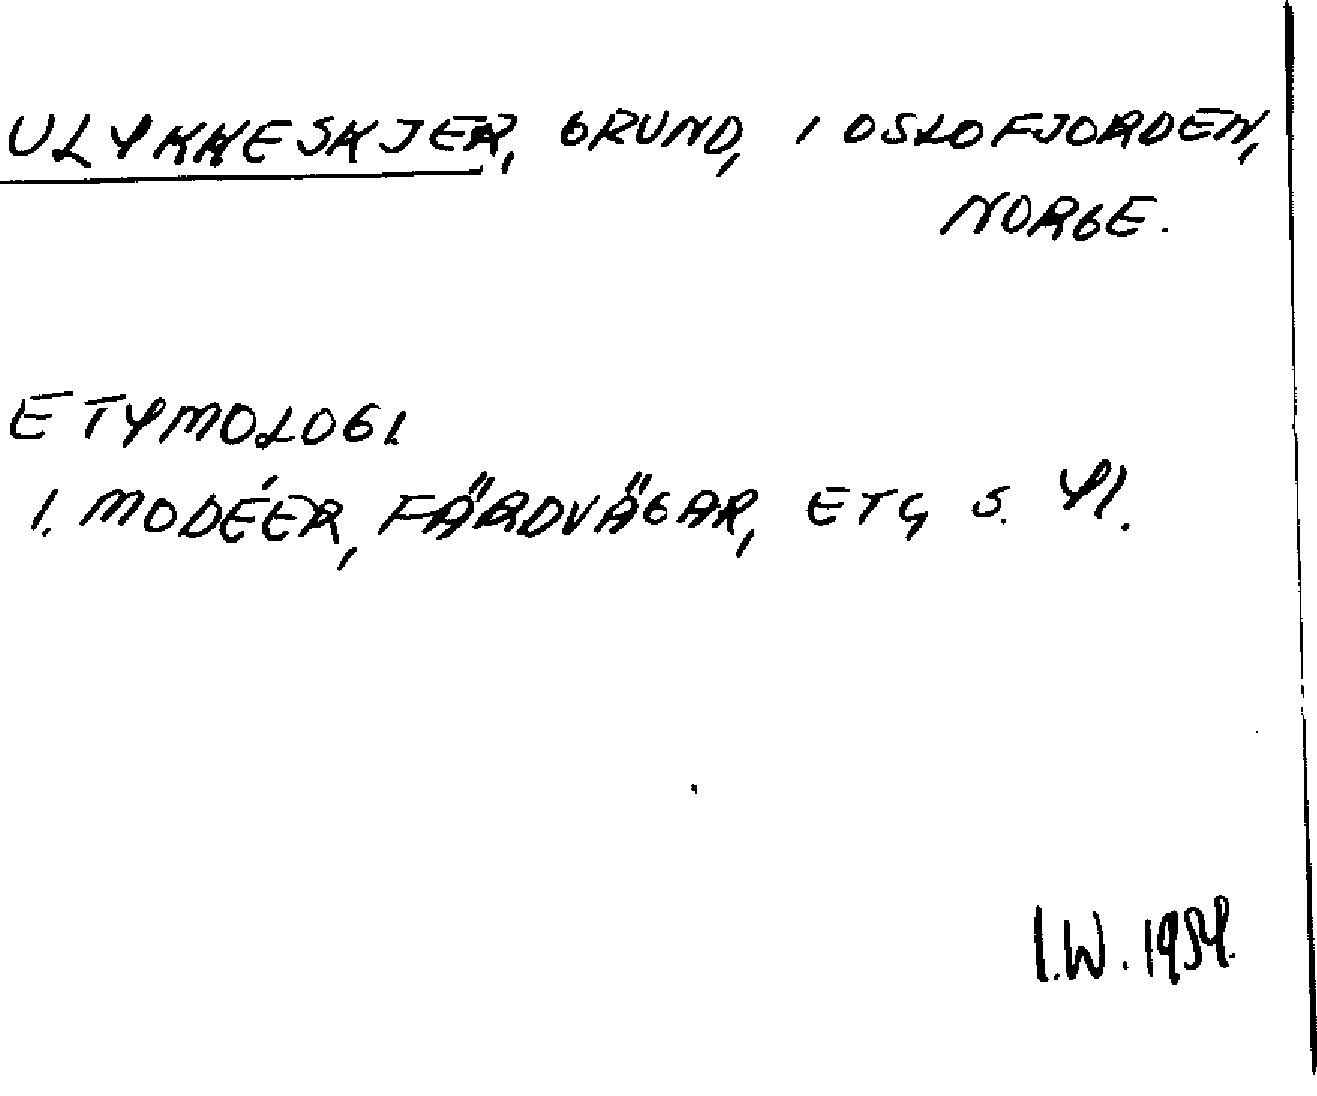 ULYKKESKJER, GRUND, I OSLOFJORDEN,
NORGE.
ETYMOLOGI
1. MODÉER, FÄRDVÄGAR, ETC, S. 41.
I.W. 1954.